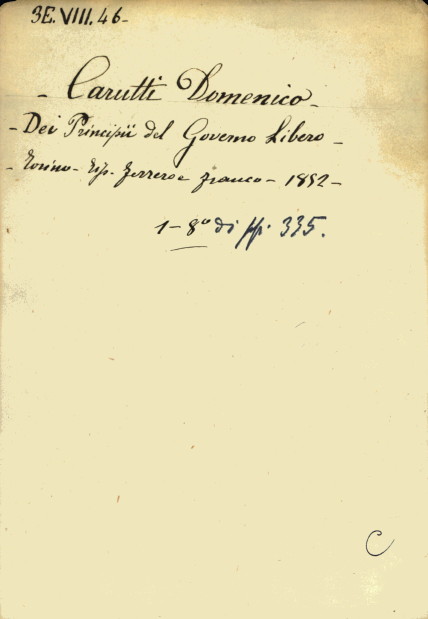 3E.VIII.46-
- Carutti Domenico -
- Dei Principii del Governo Libero -
- Torino - Tip. Ferrero e Franco - 1852 -
1 - 8º di pp. 335.
C